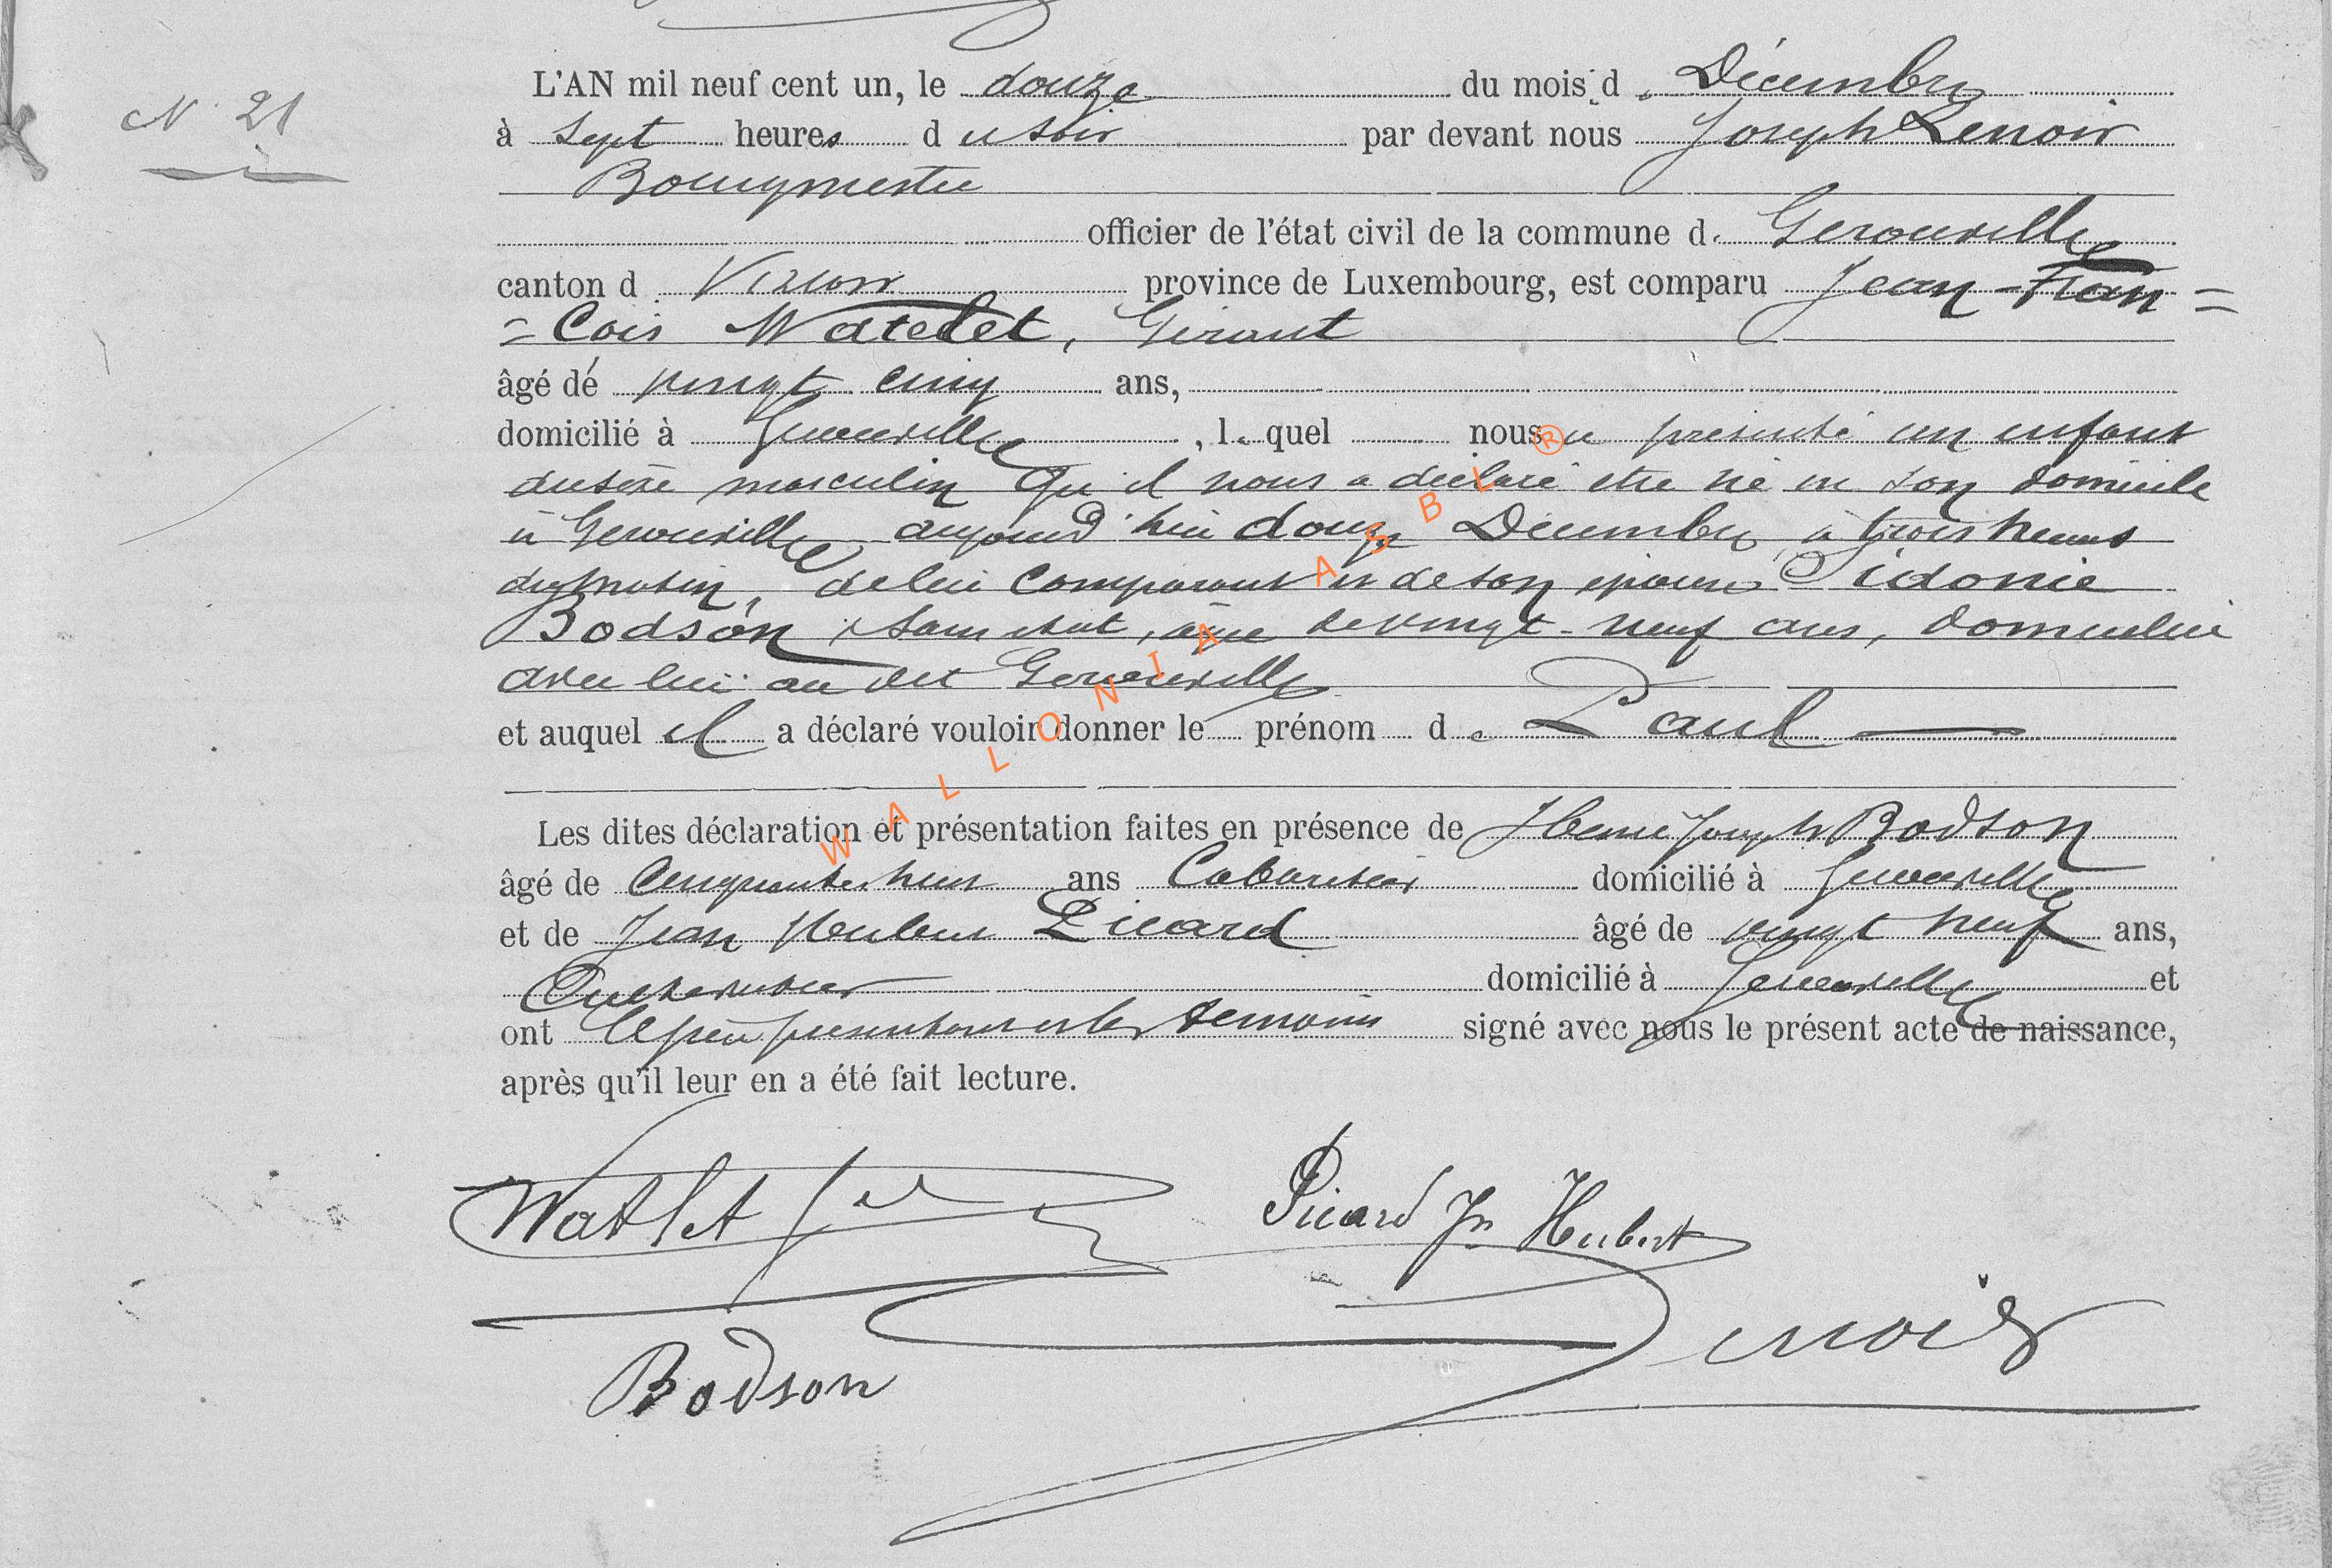 N. 21
L'AN mil neuf cent un, le douze du mois d. Décembre
à sept heures du soir par devant nous Joseph Lenoir
Bourgmestre
officier de l'état civil de la commune d. Gerouville
canton d. Virton province de Luxembourg, est comparu Jean-Fran=
=cois Watelet, Gérant
âgé de vingt cinq ans,
domicilié à Gerouville, l. quel nous a présenté un enfant
du sexe masculin qu'il nous a déclaré être né en son domicile
à Gerouville aujourd'hui douze Décembre à trois heures
du matin, de lui comparant et de son épouse Sidonie
Bodson, sans état, âgée de vingt-neuf ans, domiciliée
avec lui au dit Gerouville
et auquel il a déclaré vouloir donner le prénom de Paul
Les dites déclaration et présentation faites en présence de Joseph Bodson
âgé de ans Cabaretier domicilié à Gerouville
et de Jean Hubert Picard âgé de vingt neuf ans,
domicilié à Gerouville et
ont les témoins signé avec nous le présent acte de naissance,
après qu'il leur en a été fait lecture.
Watlet Picard Jn Hubert
Lenoir
Bodson
WALLONIA ASBL ®